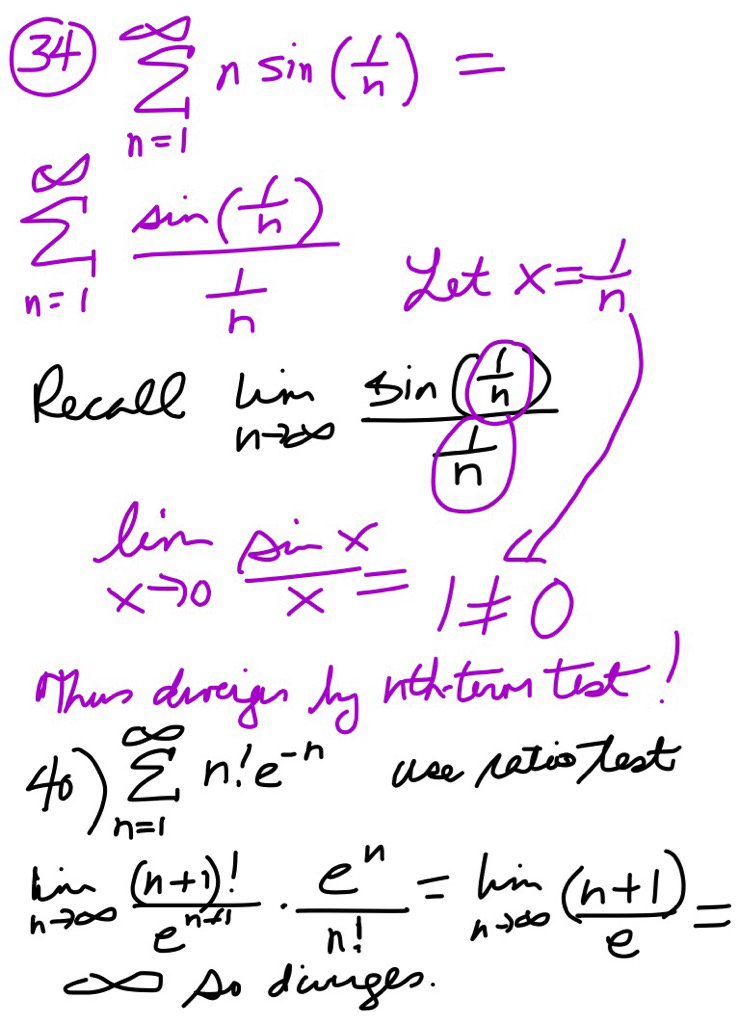 34 ∞∑n=1 n sin (1/n) =
∞∑n=1 sin(1/n) / 1/n Let x = 1/n
Recall lim n→∞ sin(1/n) / 1/n
lim x→0 sin x / x = 1 ≠ 0
Thus diverges by nth-term test!
40) ∞∑n=1 n!e^-n use ratio test
lim n→∞ (n+1)!/e^n+1 · e^n/n! = lim n→∞ (n+1)/e =
∞ so diverges.